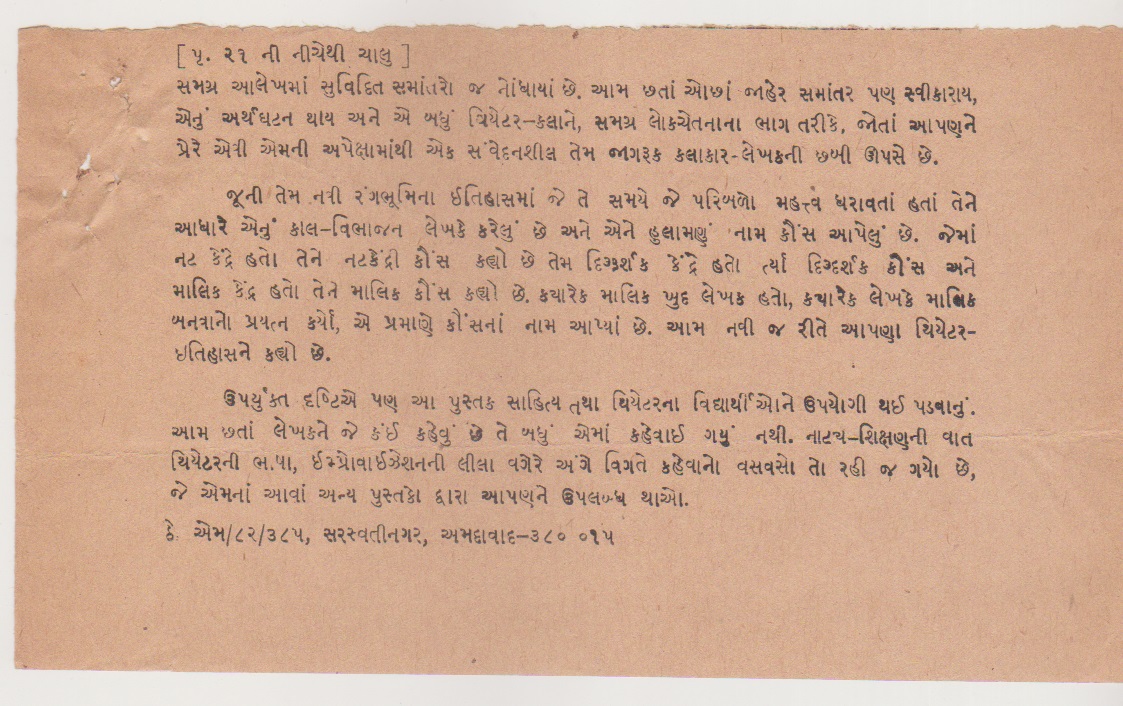 [ પૃ. ૨૩ ની નીચેથી ચાલુ ]
સમગ્ર આલેખમાં સુવિદિત સમાંતરો જ નોંધાયાં છે. આમ છતાં ઓછાં જાહેર સમાંતર પણ સ્વીકારાય,
એનું અર્થઘટન થાય અને એ બધું થિયેટર-કલાને, સમગ્ર લોકચેતનાના ભાગ તરીકે, જોતાં આપણને
પ્રેરે એવી એમની અપેક્ષામાંથી એક સંવેદનશીલ તેમ જાગરૂક કલાકાર-લેખકની છબી ઊપસે છે.
જૂની તેમ નવી રંગભૂમિના ઇતિહાસમાં જે તે સમયે જે પરિબળો મહત્ત્વ ધરાવતાં હતાં તેને
આધારે એનું કાલ-વિભાજન લેખકે કરેલું છે અને એને હુલામણું નામ કૌંસ આપેલું છે. જેમાં
નટ કેંદ્રે હતો તેને નટકેંદ્રી કૌંસ કહ્યો છે તેમ દિગ્દર્શક કેંદ્રે હતો ત્યાં દિગ્દર્શક કૌંસ અને
માલિક કેંદ્ર હતો તેને માલિક કૌંસ કહ્યો છે. કયારેક માલિક ખુદ લેખક હતો, કયારેક લેખકે માલિક
બનવાનો પ્રયત્ન કર્યો, એ પ્રમાણે કૌંસનાં નામ આપ્યાં છે. આમ નવી જ રીતે આપણા થિયેટર-
ઇતિહાસને કહ્યો છે.
ઉપર્યુક્ત દૃષ્ટિએ પણ આ પુસ્તક સાહિત્ય તથા થિયેટરના વિદ્યાર્થીઓને ઉપયોગી થઈ પડવાનું.
આમ છતાં લેખકને જે કંઈ કહેવું છે તે બધું એમાં કહેવાઈ ગયું નથી. નાટ્ય-શિક્ષણની વાત
થિયેટરની ભાષા, ઈમ્પ્રોવાઈઝેશનની લીલા વગેરે અંગે વિગતે કહેવાનો વસવસો તો રહી જ ગયો છે,
જે એમનાં આવાં અન્ય પુસ્તકો દ્વારા આપણને ઉપલબ્ધ થાઓ.
ઠે. એમ/૮૨/૩૮૫, સરસ્વતીનગર, અમદાવાદ-૩૮૦ ૦૧૫